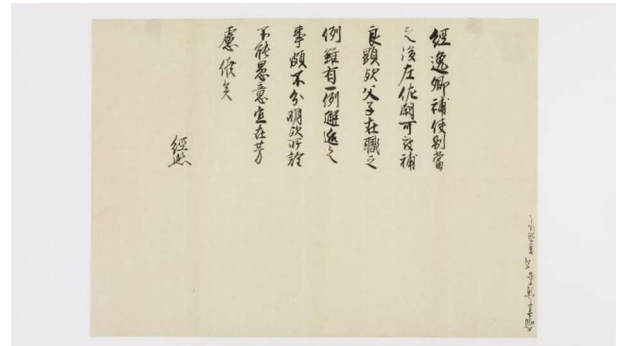 經逸卿補使別當
之後左佐闕可被補
良顕歟父子在職之
例雖有一例邂逅之
事頗不分明歟所詮
不能愚意宜在芳
慮候矣
經熈